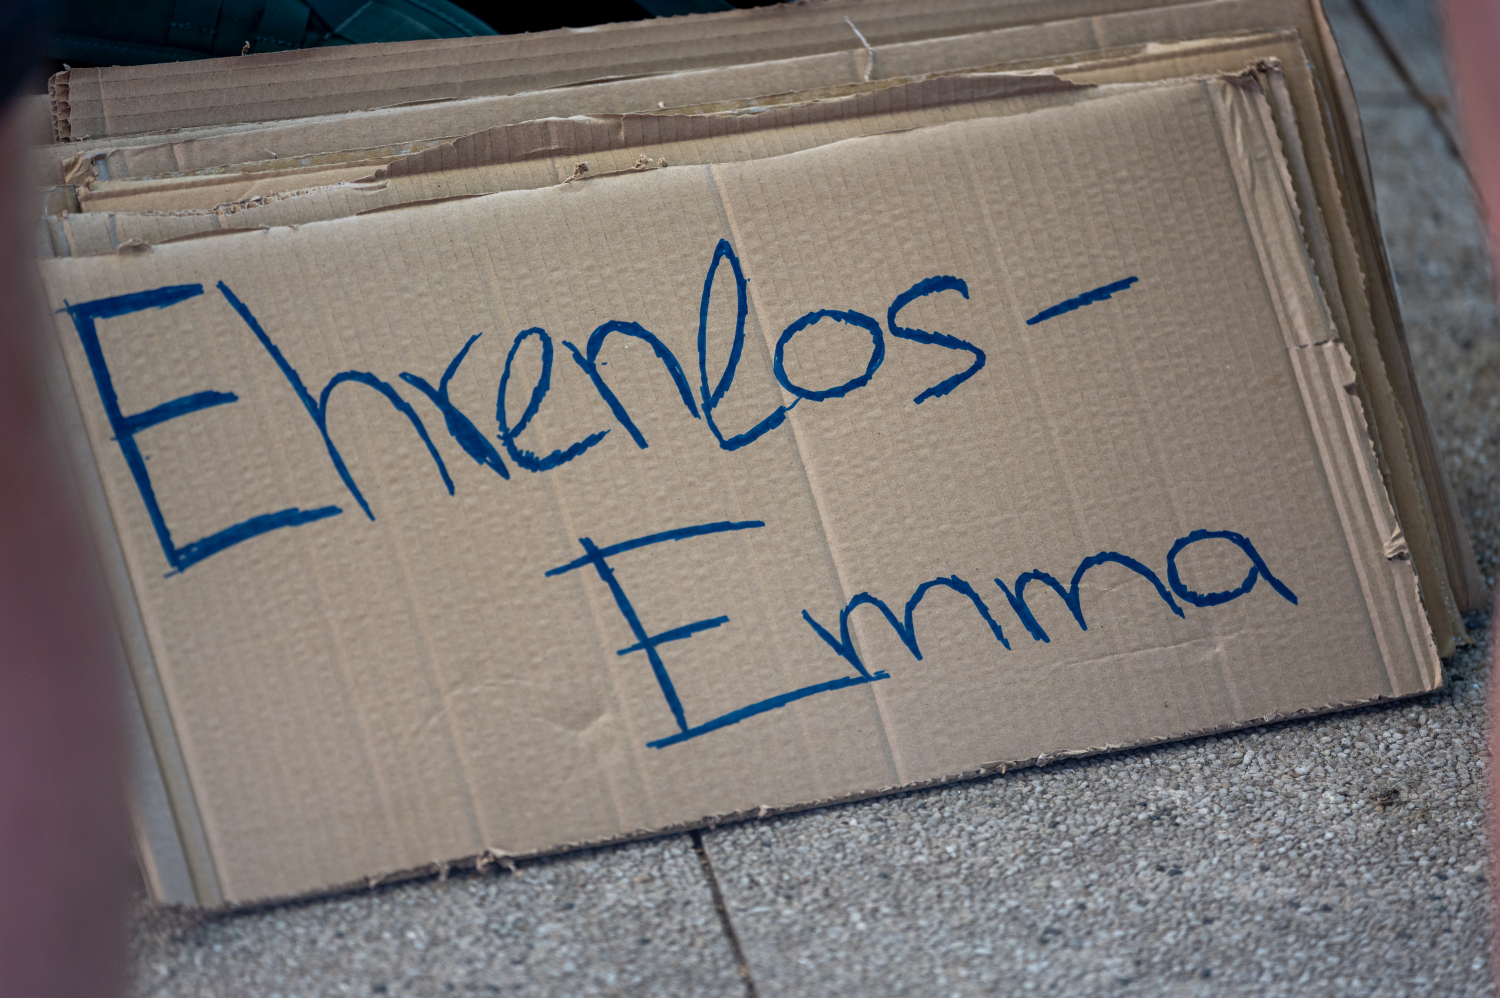 Ehrenlos-
Emma